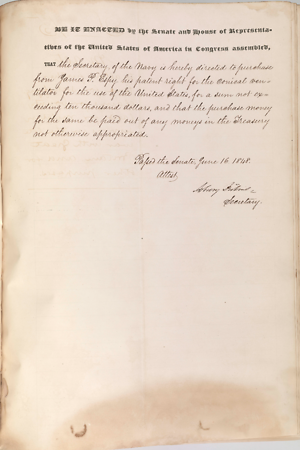 BE IT ENACTED by the Senate and House of Representa-
tives of the United States of America in Congress assembled,
THAT the Secretary, of the Navy is hereby directed to purchase
from James P. Espy his patent right for the conical ven-
tilator for the use of the United States, for a sum not ex-
ceeding ten thousand dollars, and that the purchase money
for the same be paid out of any moneys in the Treasury
not otherwise appropriated.
Passed the Senate, June 16. 1848.
Attest,
Asbury Dickins
Secretary.